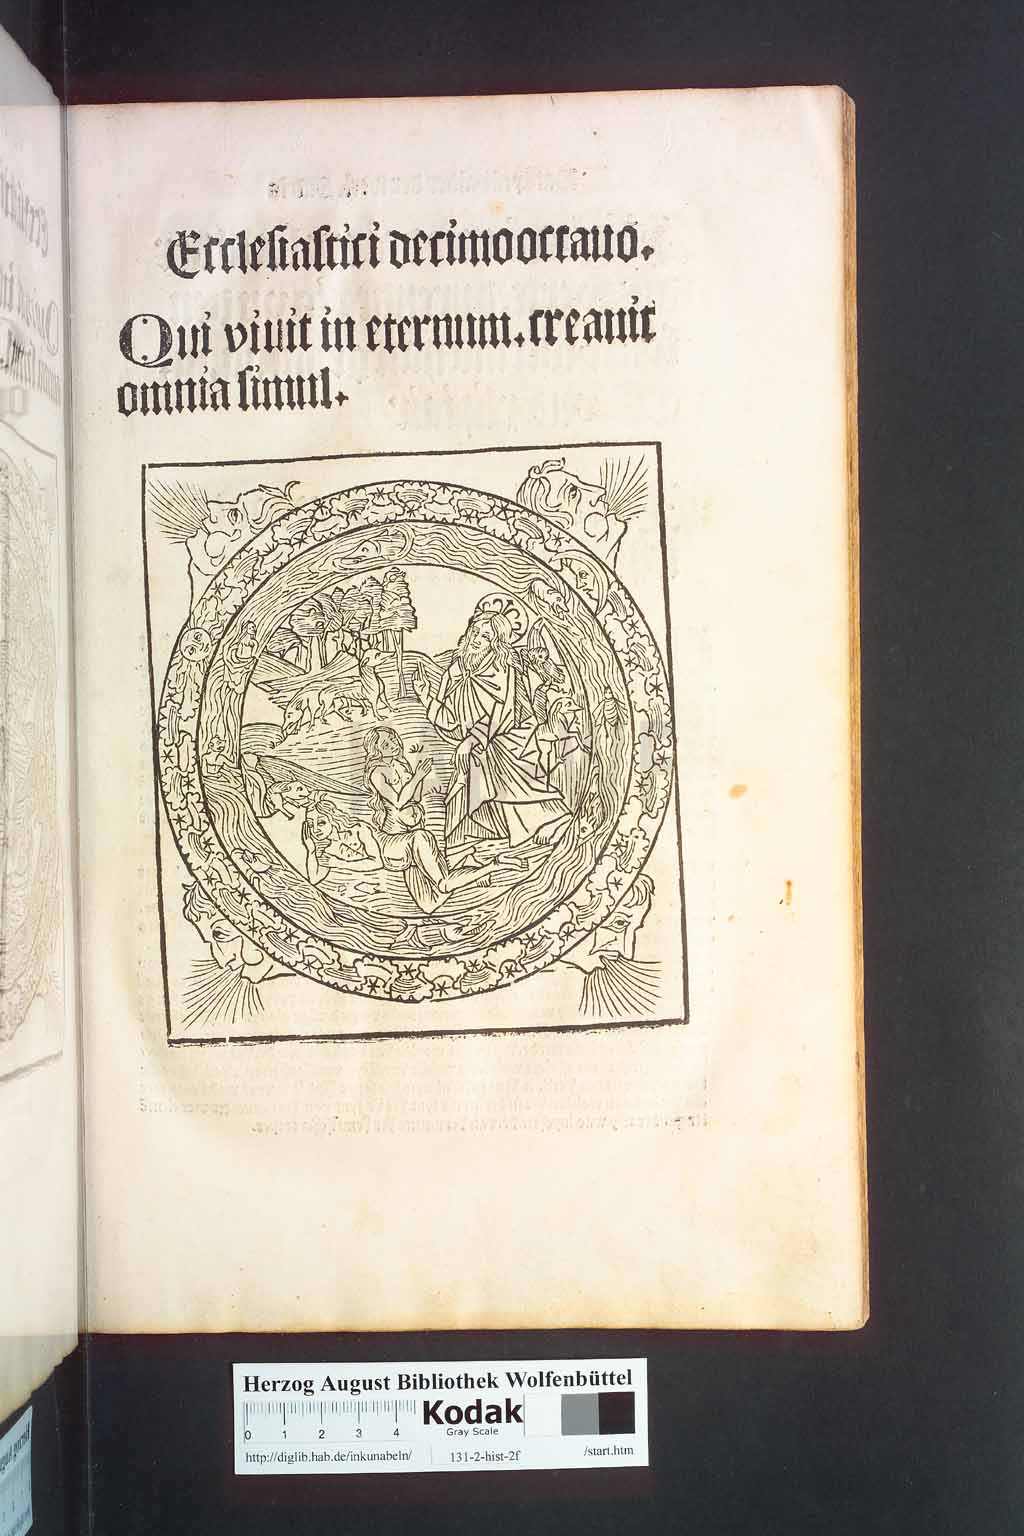 Eccleſiaſtici decimooctauo.
Qui viuit in eternum. creauit
omnia ſimul.
Herzog August Bibliothek Wolfenbüttel
0 1 2 3 4
Kodak
Gray Scale
http://diglib.hab.de/inkunabeln/ 131-2-hist-2f /start.htm